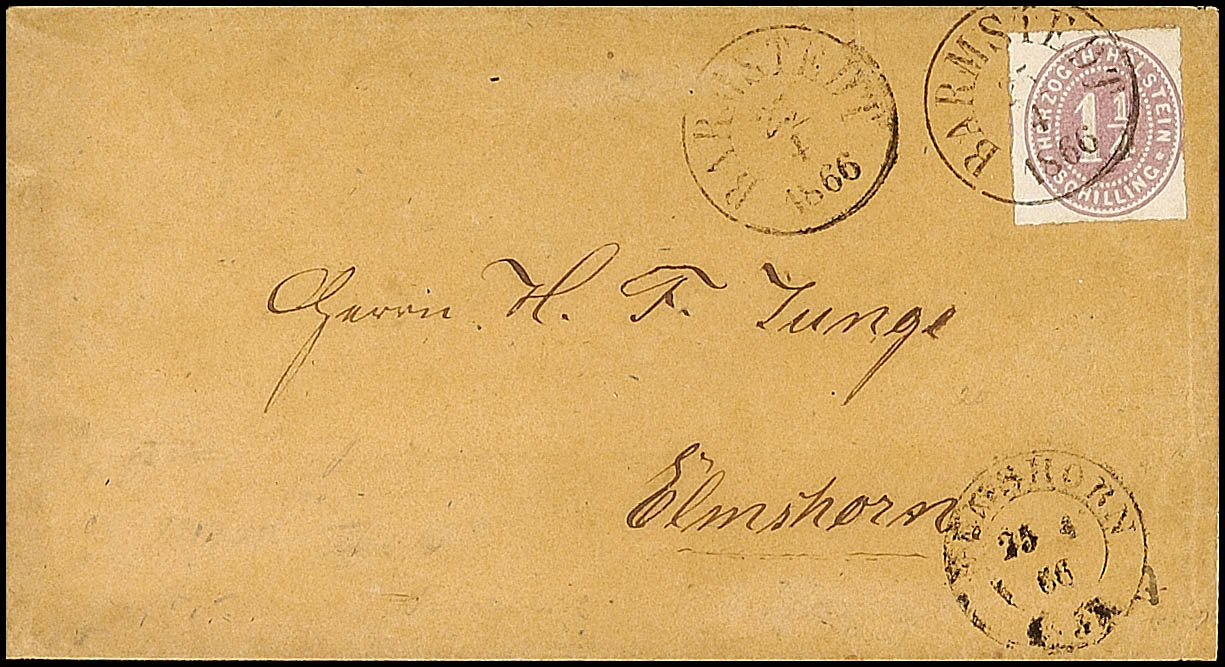 BARMSTEDT
1866
BARMSTEDT
1866
HERZOGTH. HOLSTEIN
1¼
SCHILLING
Herrn H. F. Junge
Elmshorn
ELMSHORN
25 4
66